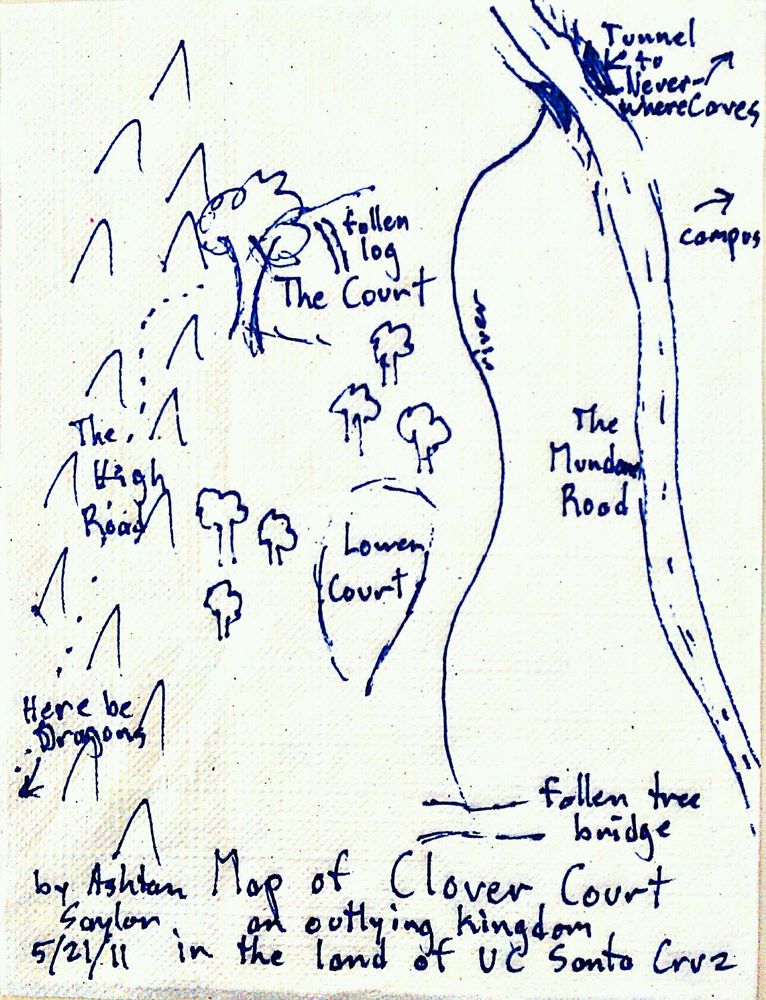 Tunnel
to
Never-
where Caves
campus
fallen
log
The Court
river
The
Mundane
Road
The
High
Road
Lower
Court
Here be
Dragons
fallen tree
bridge
Map of Clover Court
an outlying kingdom
in the land of UC Santa Cruz
by Ashton
Saylor
5/21/11